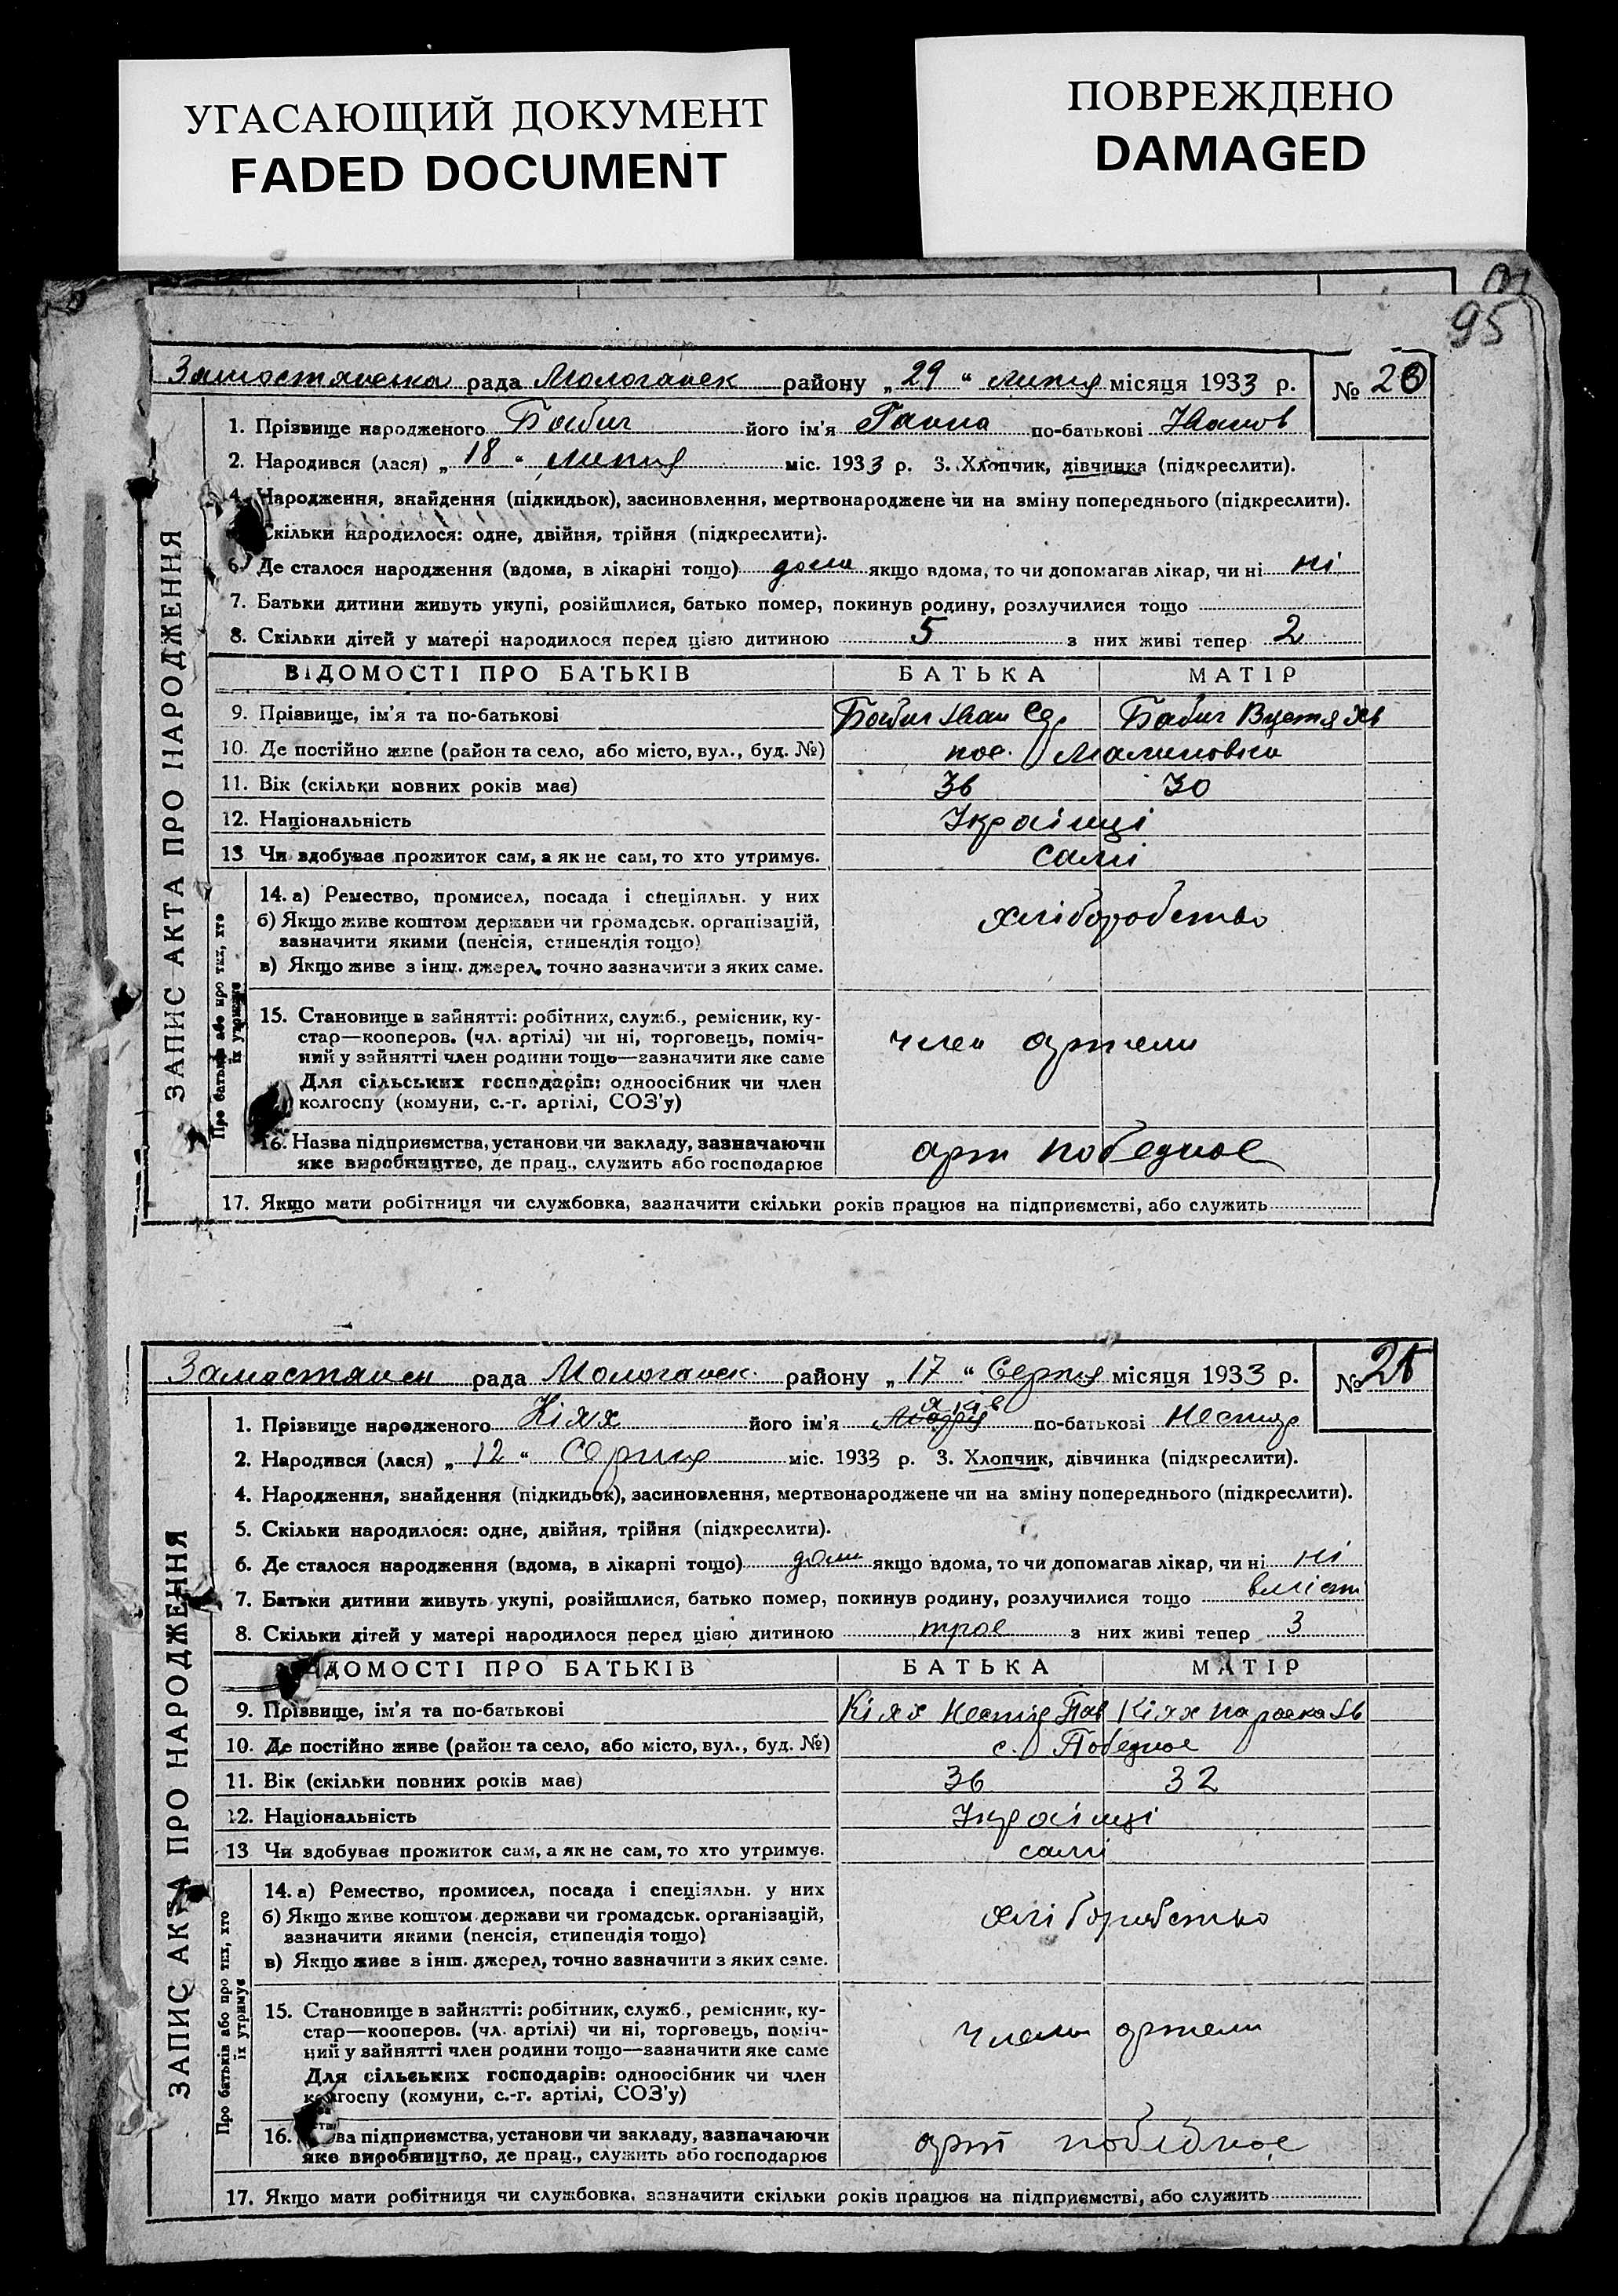 УГАСАЮЩИЙ ДОКУМЕНТ
FADED DOCUMENT
ПОВРЕЖДЕНО
DAMAGED
95
рада района „ 29 “ липня місяця 1933 р. № 20
1. Прізвище народженого Бабич його ім'я Ганна по-батькові Иванов
2. Народився (лася) „ 18 “ липня міс. 1933 р. 3. Хлопчик, дівчинка (підкреслити).
4. Народження, знайдення (підкидьок), засиновлення, мертвонароджене чи на зміну попереднього (підкреслити).
Скільки народилося: одне, двійня, трійня (підкреслити).
6. Де сталося народження (вдома, в лікарні тощо) дома якщо вдома, то чи допомагав лікар, чи ні ні
7. Батьки дитини живуть укупі, розійшлися, батько помер, покинув родину, розлучилися тощо
8. Скільки дітей у матері народилося перед цією дитиною 5 з них живі тепер 2
ВІДОМОСТІ ПРО БАТЬКІВ БАТЬКА МАТІР
9. Прізвище, ім'я та по-батькові Бабич Иван Бабич Вустя
10. Де постійно живе (район та село, або місто, вул., буд. №) пос. Малиновка
11. Вік (скільки повних років має) 36 30
12. Національність Українці
13 Чи здобуває прожиток сам, а як не сам, то хто утримує. самі
14. а) Ремество, промисел, посада і спеціяльн. у них
б) Якщо живе коштом держави чи громадськ. організацій,
зазначити якими (пенсія, стипендія тощо)
в) Якщо живе з інш. джерел, точно зазначити з яких саме.
хліборобство
15. Становище в зайнятті: робітник, служб., ремісник, ку-
стар—кооперов. (чл. артілі) чи ні, торговець, поміч-
ний у зайнятті член родини тощо—зазначити яке саме
Для сільських господарів: одноосібник чи член
колгоспу (комуни, с.-г. артілі, СОЗ'у)
член артели
16. Назва підприємства, установи чи закладу, зазначаючи
яке виробництво, де прац., служить або господарює
арт победное
17. Якщо мати робітниця чи службовка, зазначити скільки років працює на підприємстві, або служить
ЗАПИС АКТА ПРО НАРОДЖЕННЯ
Про батьків або про тих, хто
їх утримує
рада району „ 17 “ Серпня місяця 1933 р. №
1. Прізвище народженого Кіях його ім'я Яків по-батькові Нестир
2. Народився (лася) „ 12 “ Серпня міс. 1933 р. 3. Хлопчик, дівчинка (підкреслити).
4. Народження, знайдення (підкидьок), засиновлення, мертвонароджене чи на зміну попереднього (підкреслити).
5. Скільки народилося: одне, двійня, трійня (підкреслити).
6. Де сталося народження (вдома, в лікарні тощо) дома якщо вдома, то чи допомагав лікар, чи ні ні
7. Батьки дитини живуть укупі, розійшлися, батько помер, покинув родину, розлучилися тощо вмісті
8. Скільки дітей у матері народилося перед цією дитиною трое з них живі тепер 3
ДОМОСТІ ПРО БАТЬКІВ БАТЬКА МАТІР
9. Прізвище, ім'я та по-батькові Кіях Нестир Пав Кіях Параска
10. Де постійно живе (район та село, або місто, вул., буд. №) с. Победное
11. Вік (скільки повних років має) 36 32
12. Національність Українці
13 Чи здобуває прожиток сам, а як не сам, то хто утримує. самі
14. а) Ремество, промисел, посада і спеціяльн. у них
б) Якщо живе коштом держави чи громадськ. організацій,
зазначити якими (пенсія, стипендія тощо)
в) Якщо живе з інш. джерел, точно зазначити з яких саме.
хліборобство
15. Становище в зайнятті: робітник, служб., ремісник, ку-
стар—кооперов. (чл. артілі) чи ні, торговець, поміч-
ний у зайнятті член родини тощо—зазначити яке саме
Для сільських господарів: одноосібник чи член
колгоспу (комуни, с.-г. артілі, СОЗ'у)
члени артели
16. ва підприємства, установи чи закладу, зазначаючи
яке виробництво, де прац., служить або господарює
арт победное
17. Якщо мати робітниця чи службовка, зазначити скільки років працює на підприємстві, або служить
ЗАПИС АКТА ПРО НАРОДЖЕННЯ
Про батьків або про тих, хто
їх утримує